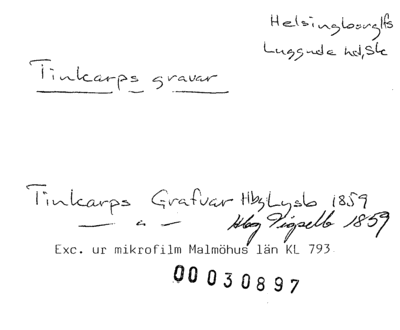 Helsingborg lfs
Luggude hd, Sk
Tinkarps gravar
Tinkarps Grafvar Hbg Lysb 1859
— " — Hbg Vigselb 1859
Exc. ur mikrofilm Malmöhus län KL 793
00030897